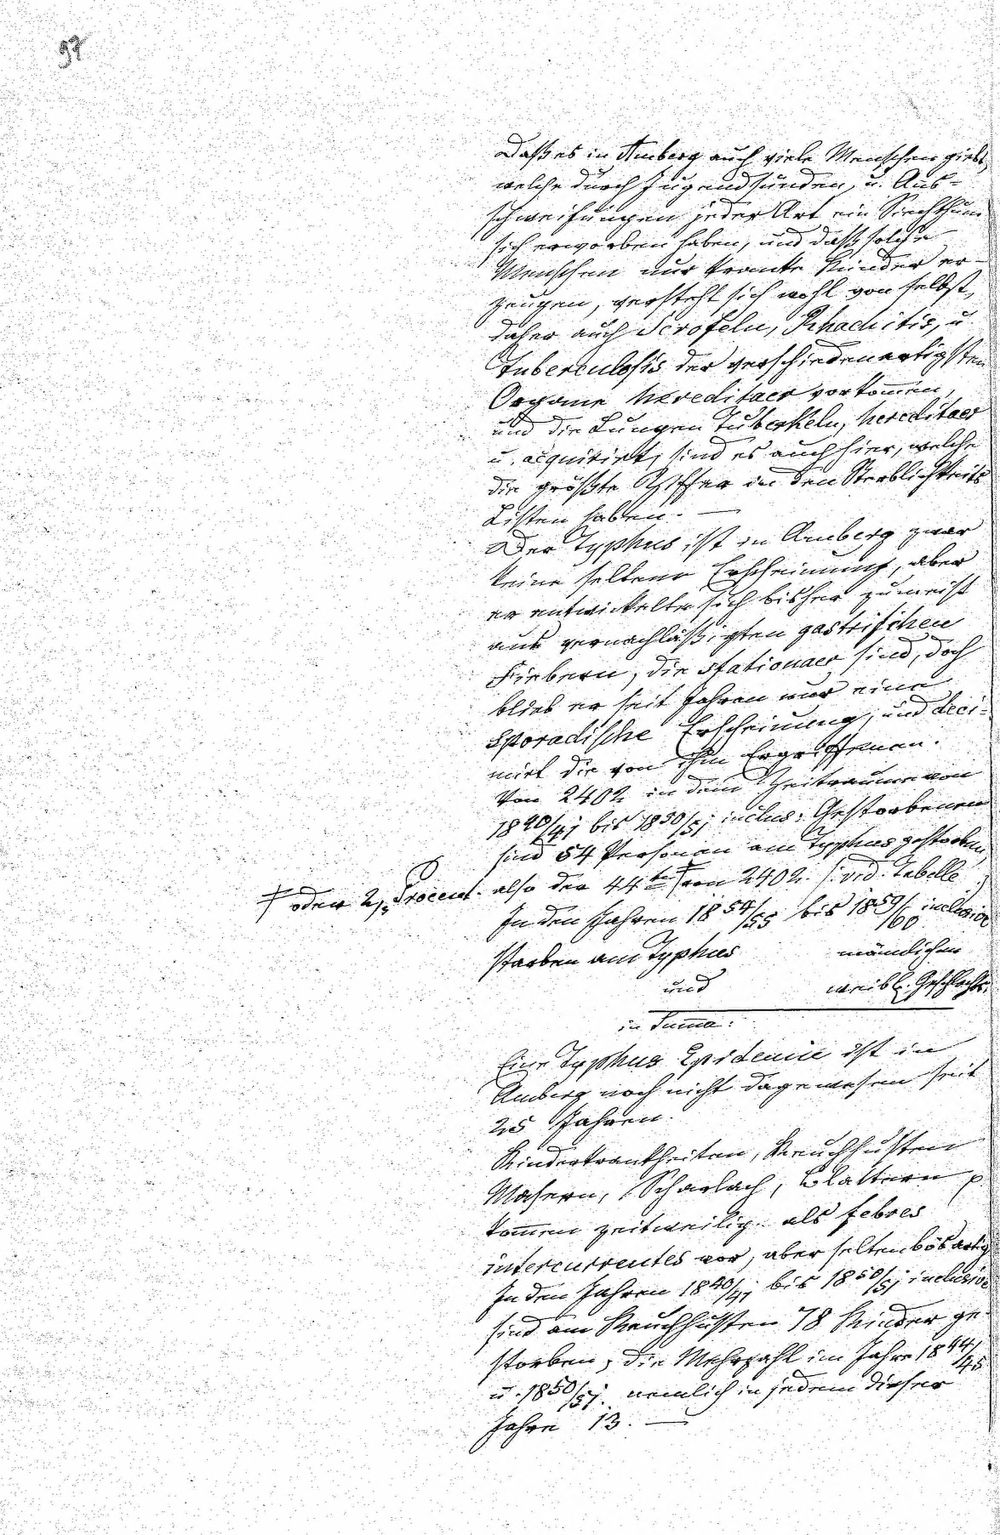 97
Daß es in Amberg auch viele Menschen giebt,
welche durch Jugendsünden, u. Aus-
schweifungen jeder Art ein Siechthum
sich erworben haben, und daß solche
Menschen nur kranke Kinder er-
zeugen, versteht sich wohl von selbst,
daher auch Scrofeln, Rhachitis, u
Tuberculosis der verschiedenartigsten
Organe hereditaer vorkom̄en,
und die Lungen Tuberkeln, hereditaer
u. acquirirt, sind es auch hier, welche
die größte Ziffer in den Sterblichkeits
Listen haben. —
Der Typhus ist in Amberg zwar
keine seltene Erscheinung, aber
er entwickelte sich bisher zumeist
aus vernachläßigten gastrischen
Fiebern, die stationaer sind, doch
blieb er seit Jahren nur eine
sporadische Erscheinung, und deci-
mirt die von ihm Ergriffenen.
Von 2402 in dem Zeitraume von
1840/41 bis 1850/51 inclus: Gestorbenen
sind 54 Personen am Typhus gestorben,
also der 44te von 2402. (: vid. Tabelle
‡ oder 2 Procent.
In den Jahren 1854/55 bis 1859/60 inclusive
starben am Typhus männlichen
und weibl. Geschlechts.
in Sum̄a:
Eine Typhus Epidemie ist in
Amberg noch nicht dagewesen seit
25 Jahren.
Kinderkrankheiten, Keuchhusten
Masern, Scharlach, Blattern p
kom̄en zeitweilig als febres
intercurrentes vor, aber selten bösartig
In den Jahren 1840/41 bis 1850/51 inclusive
sind am Keuchhusten 78 Kinder ge-
storben, die Mehrzahl im Jahre 1844/45
u. 1850/51. nemlich in jedem dieser
Jahre 13. —